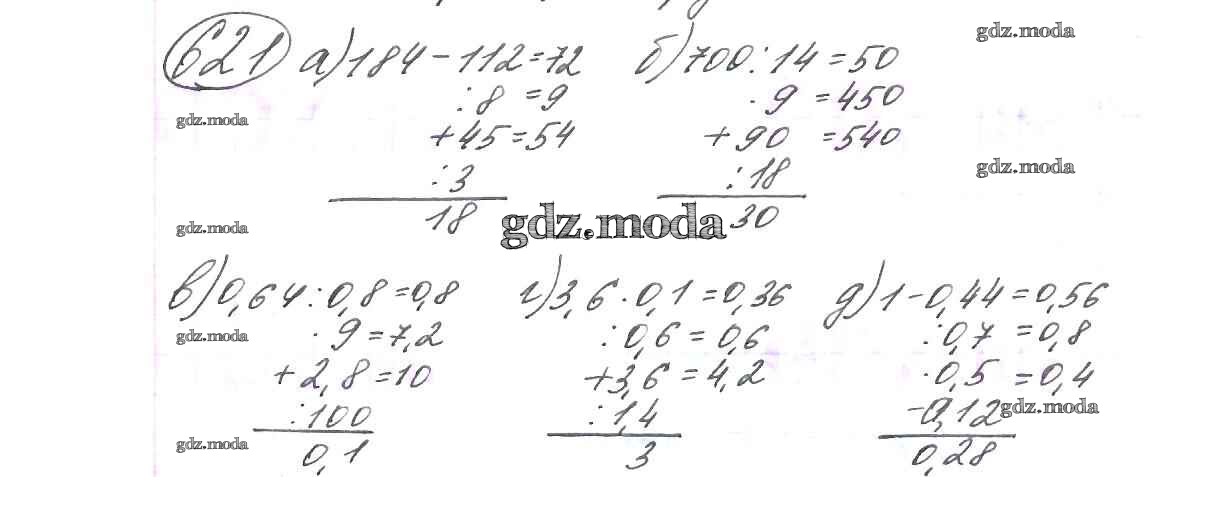 gdz.moda
621 а) 184 - 112 = 72
: 8 = 9
+ 45 = 54
: 3
18
б) 700 : 14 = 50
· 9 = 450
+ 90 = 540
: 18
30
gdz.moda
gdz.moda
gdz.moda
gdz.moda
в) 0,64 : 0,8 = 0,8
· 9 = 7,2
+ 2,8 = 10
: 100
0,1
г) 3,6 · 0,1 = 0,36
: 0,6 = 0,6
+ 3,6 = 4,2
: 1,4
3
д) 1 - 0,44 = 0,56
: 0,7 = 0,8
· 0,5 = 0,4
- 0,12
0,28
gdz.moda
gdz.moda
gdz.moda